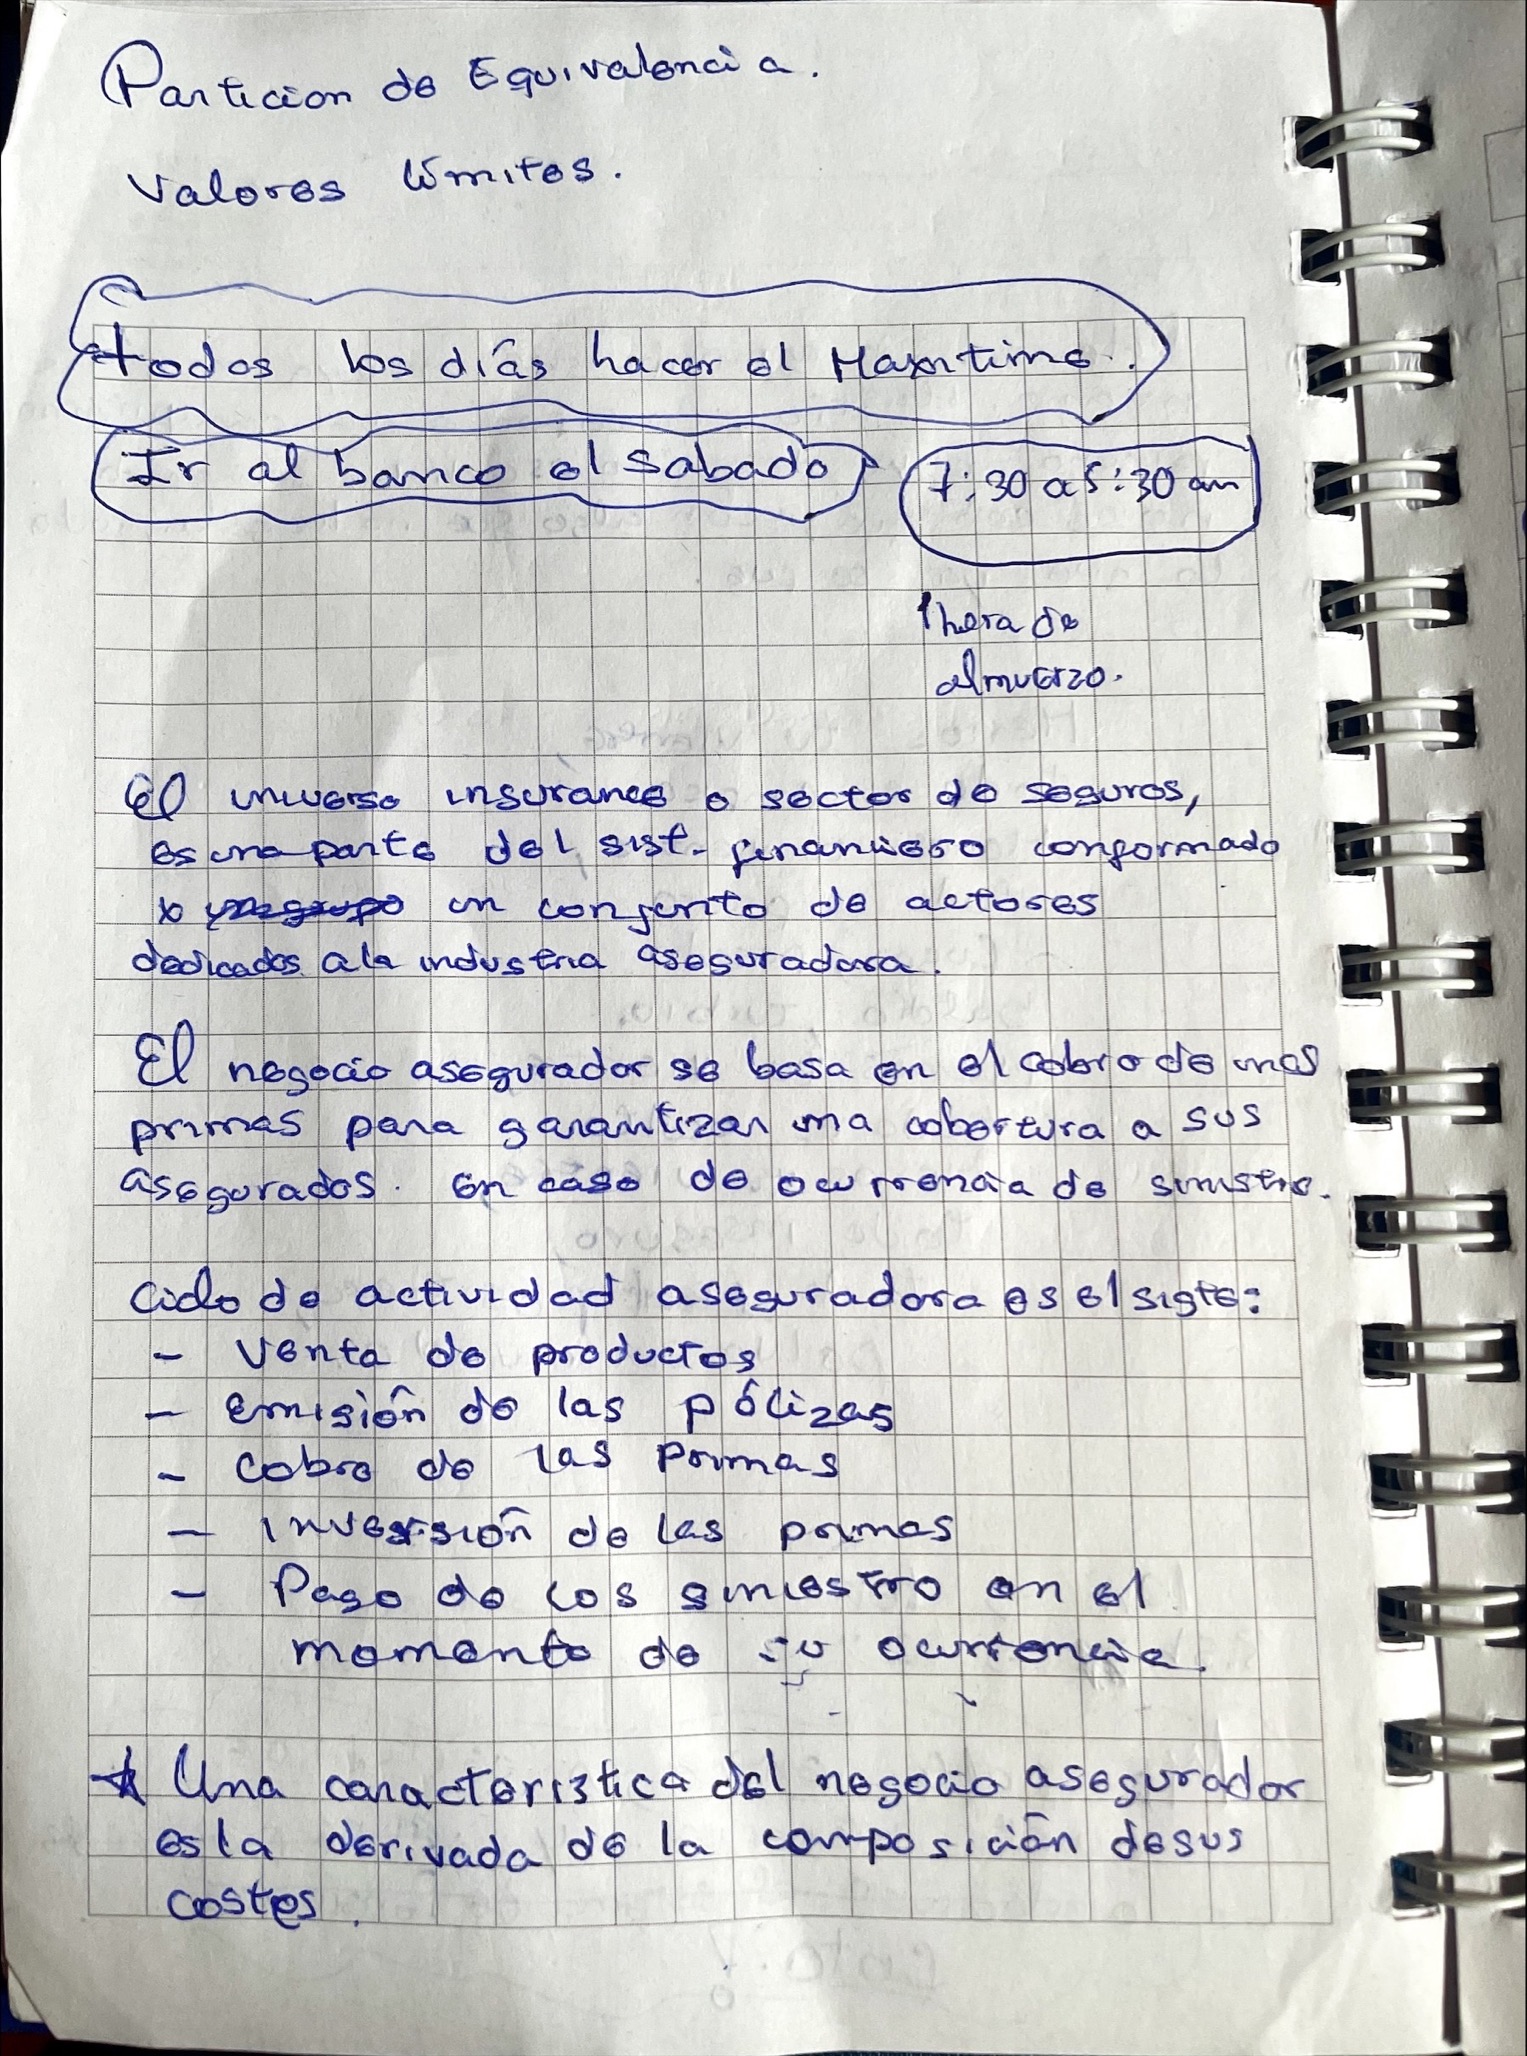 Particion de Equivalencia.
Valores límites.
todos los días hacer el Mantime.
Ir al banco el sabado
7:30 a 5:30 am
1 hora de
almuerzo.
El universo insurance o sector de seguros,
es una parte del sist. financiero conformado
x un grupo un conjunto de actores
dedicados a la industria aseguradora.
El negocio asegurador se basa en el cobro de unas
primas para garantizar una cobertura a sus
asegurados. en caso de ocurrencia de sinistro.
Ciclo de actividad aseguradora es el sigte:
- Venta de productos
- Emisión de las pólizas
- Cobro de las Primas
- Inversión de las primas
- Pago de los siniestro en el
momento de su ocurrencia.
* Una caracteristica del negocio asegurador
es la derivada de la composición de sus
costes.